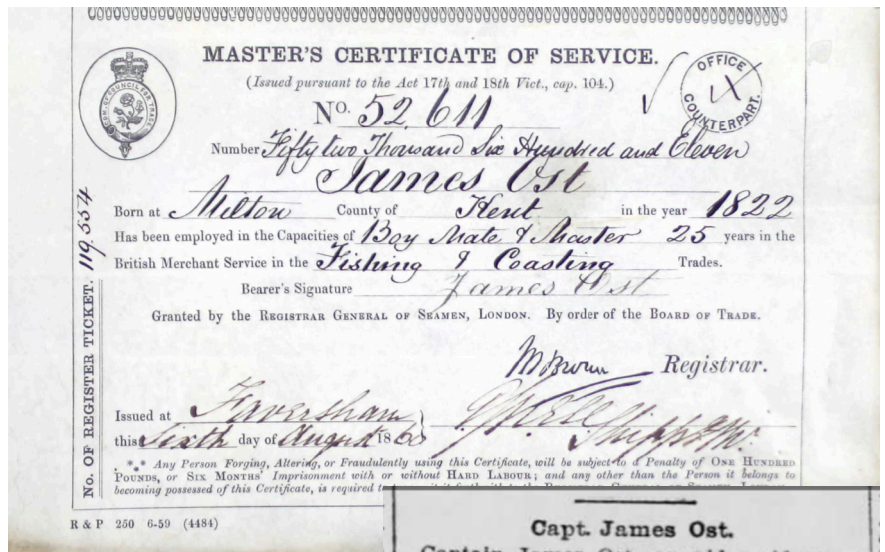 MASTER'S CERTIFICATE OF SERVICE.
(Issued pursuant to the Act 17th and 18th Vict., cap. 104.)
OFFICE COUNTERPART.
No. 52,611
Number Fifty two Thousand Six Hundred and Eleven
James Ost
Born at Milton County of Kent in the year 1822
Has been employed in the Capacities of Boy Mate & Master 25 years in the
British Merchant Service in the Fishing & Coasting Trades.
Bearer's Signature James Ost
Granted by the REGISTRAR GENERAL OF SEAMEN, LONDON. By order of the BOARD OF TRADE.
Registrar.
Issued at Faversham
this Sixth day of August 186
*** Any Person Forging, Altering, or Fraudulently using this Certificate, will be subject to a Penalty of ONE HUNDRED
POUNDS, or SIX MONTHS' Imprisonment with or without HARD LABOUR; and any other than the Person it belongs to
becoming possessed of this Certificate, is required
R & P 250 6-59 (4484)
No. OF REGISTER TICKET. 119,554
Capt. James Ost.
Captain James Ost